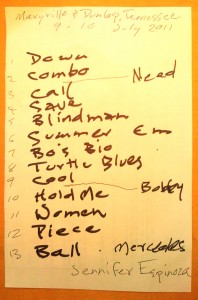 Maryville & Dunlop, Tennessee
9 - 10 July 2011
1 Down
2 Combo Need
3 Call
4 Save
5 Blindman
6 Summer Em
7 Bo's Bio
8 Turtle Blues
9 Cool
10 Hold Me Bobby
11 Women
12 Piece
13 Ball. Mercedes
Jennifer Espinoza